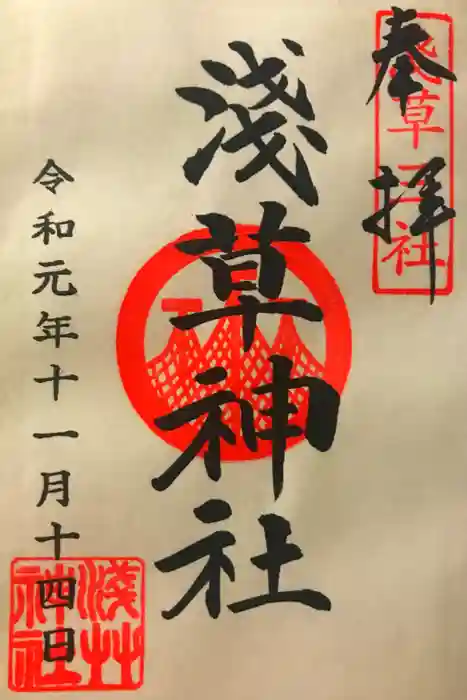 奉拝
浅草三社
淺草神社
令和元年十一月十四日
淺草
神社